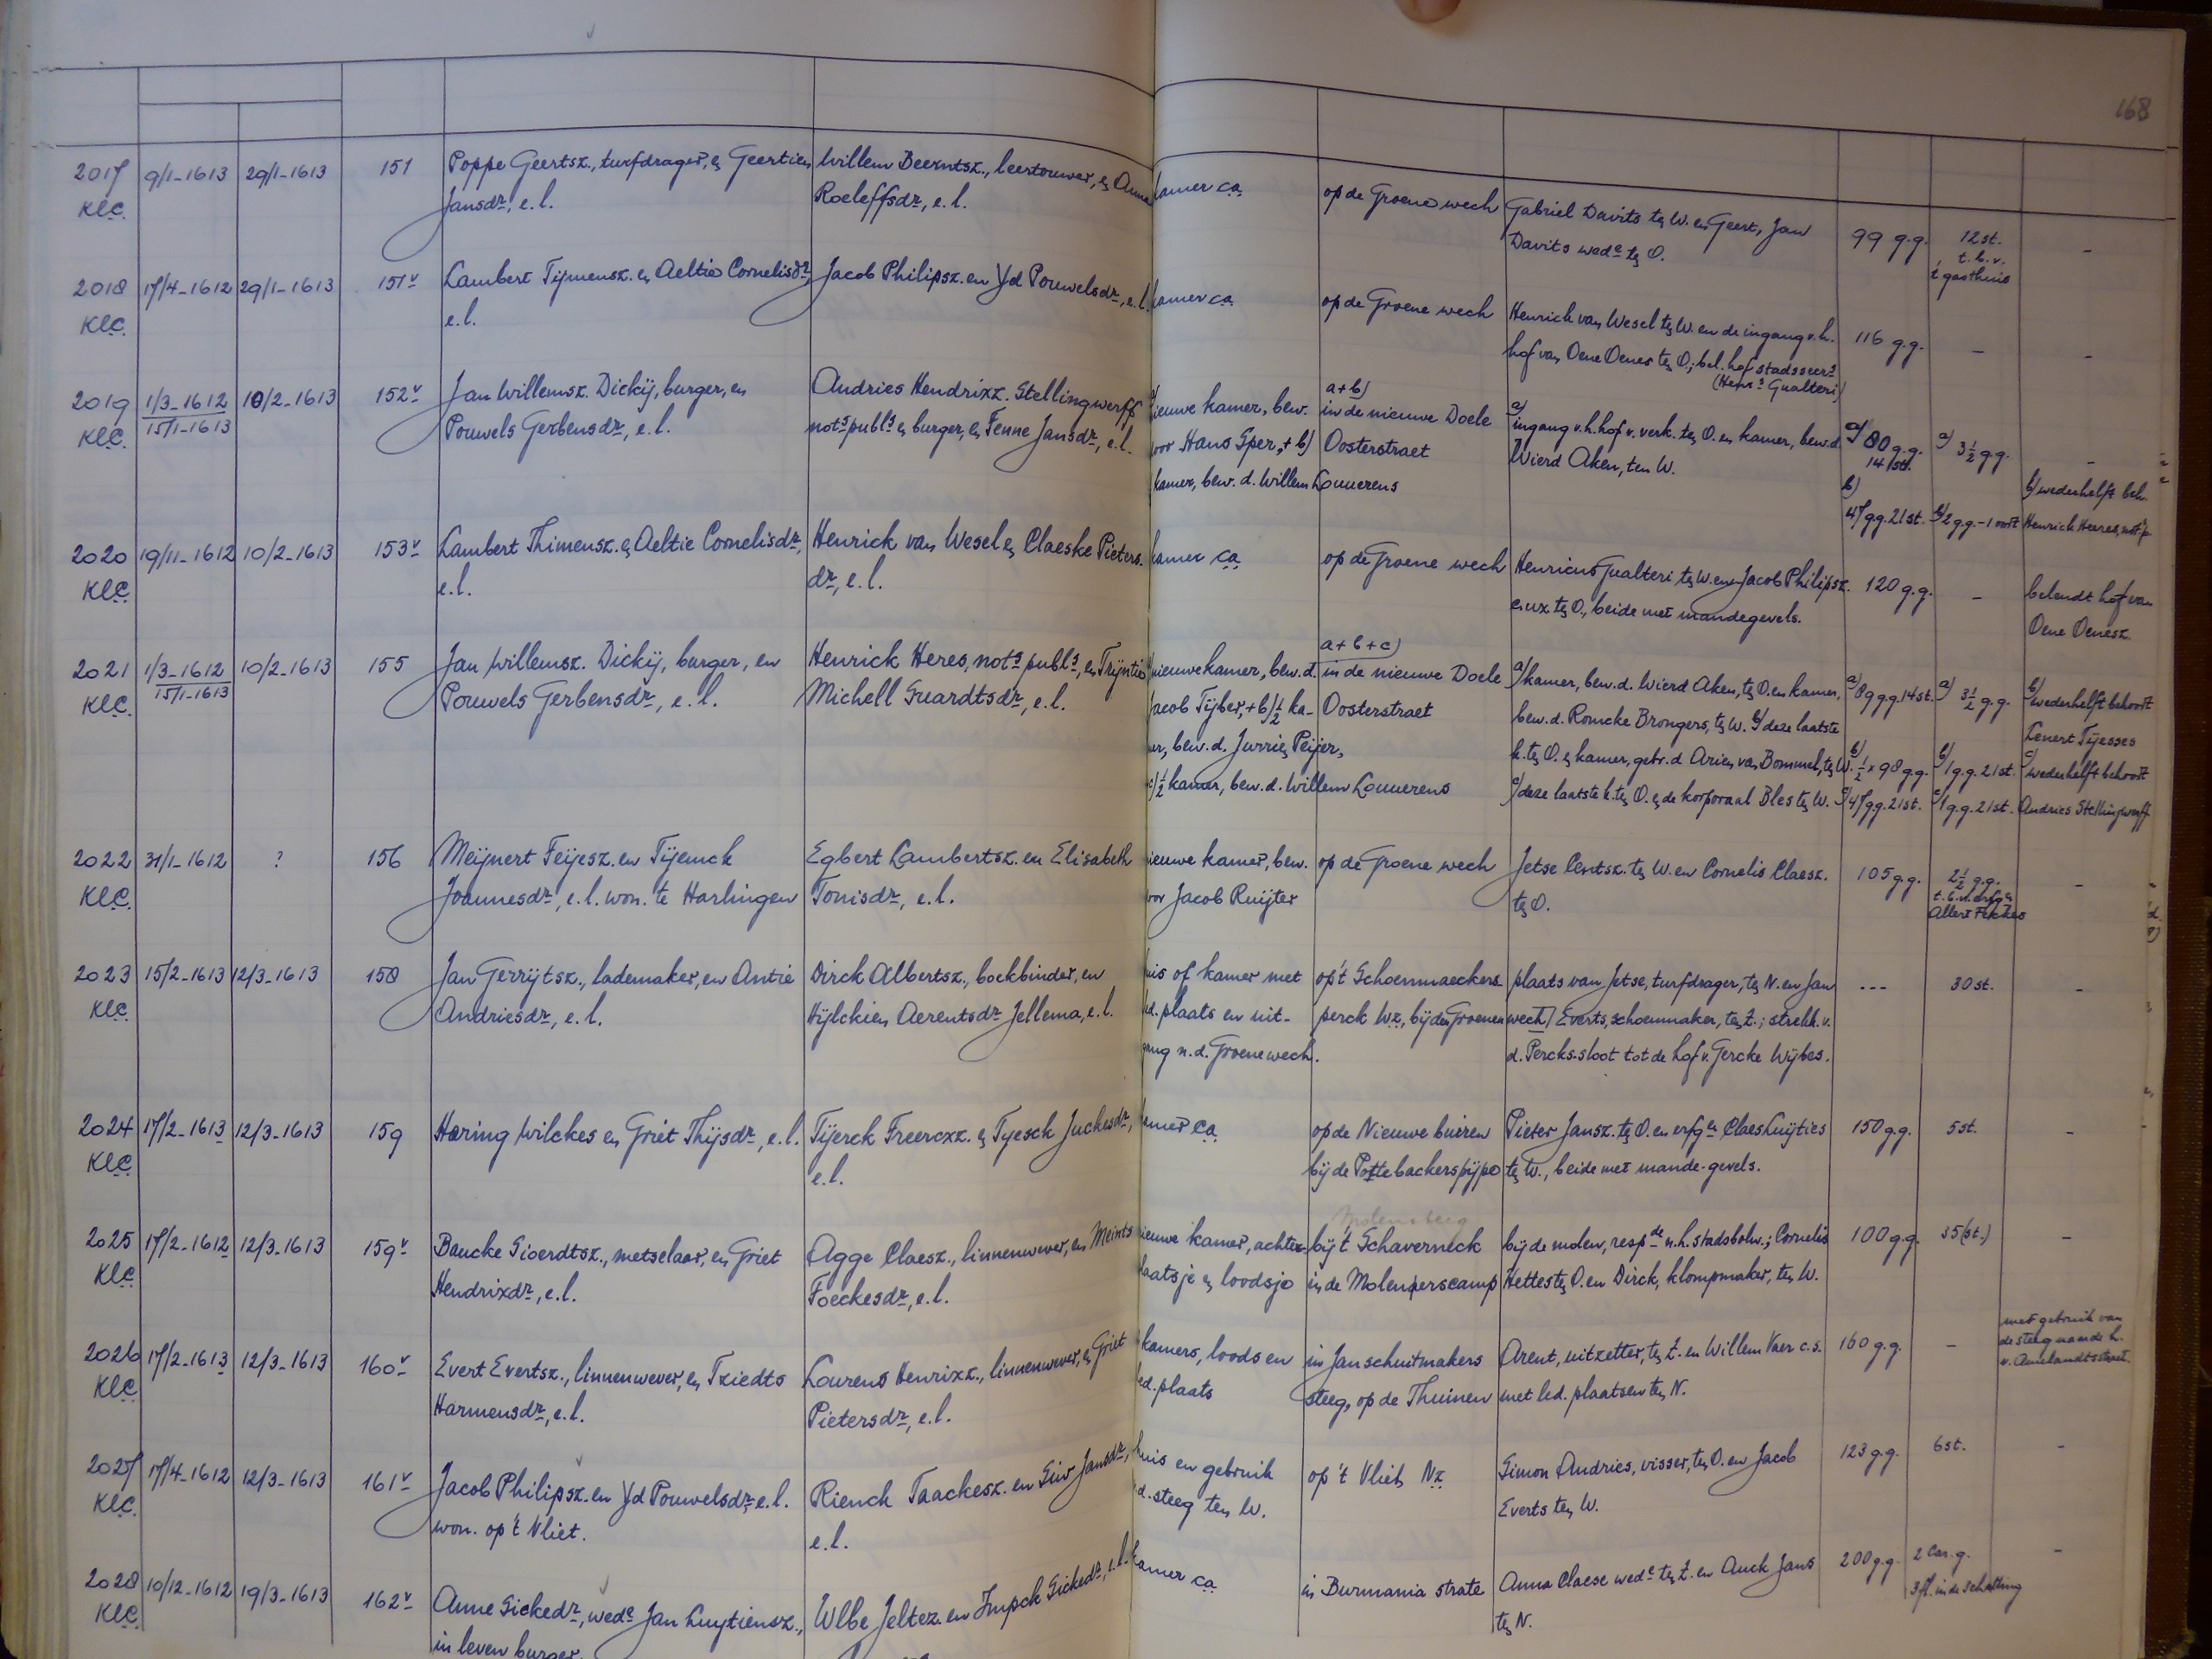 168
2017 9/1-1613 29/1-1613 151 Poppe Geertsz., turfdrager, en Geertien Willem Beerntsz., leertouwer, en Anna kamer ca. op de Groene wech Gabriel Davits ten W. en Geert, Jan 99 g.g. 12 st. -
KlC. Jansdr, e.l. Roeleffsdr, e.l. Davits wede ten O. t.b.v.
't gasthuis
2018 17/4-1612 29/1-1613 151v Lambert Tijmensz. en Aeltie Cornelisdr, Jacob Philipsz. en Yd Pouwelsdr, e.l. kamer ca. op de Groene wech Henrick van Wesel ten W. en de ingang v.h. 116 g.g. - -
KlC. e.l. hof van Oene Oenes ten O.; bel. hof stadssecrs
(Henrs Gualteri)
2019 1/3-1612 10/2-1613 152v Jan Willemsz. Dickij, burger, en Andries Hendrixz. Stellingwerff a) nieuwe kamer, bew. a+b) in de nieuwe Doele a) ingang v.h. hof v. verk. ten O. en kamer, bew. d. a) 80 g.g. a) 3½ g.g. -
KlC. 15/1-1613 Pouwels Gerbensdr, e.l. nots publs en burger, en Fenne Jansdr, e.l. voor Hans Sper, + b) Oosterstraet Wierd Aken, ten W. 14 st.
kamer, bew. d. Willem Louwerens b) b) wederhelft beh.
47 g.g. 21 st. b) 2 g.g. - 1 oort Henrick Heeres, not. p.
2020 19/11-1612 10/2-1613 153v Lambert Thimensz. en Aeltie Cornelisdr, Henrick van Wesel en Claeske Pieters- kamer ca. op de Groene wech Henricus Gualteri ten W. en Jacob Philipsz. 120 g.g. - belendt hof van
KlC. e.l. dr, e.l. c.ux. ten O., beide met mandegevels. Oene Oenesz.
2021 1/3-1612 10/2-1613 155 Jan Willemsz. Dickij, burger, en Henrick Heres, nots publs, en Trijntie nieuwe kamer, bew. d. a+b+c) in de nieuwe Doele a) kamer, bew. d. Wierd Aken, ten O. en kamer, a) 89 g.g. 14 st. a) 3½ g.g. b) wederhelft behoort
KlC. 15/1-1613 Pouwels Gerbensdr, e.l. Michell Guardtsdr, e.l. Jacob Tijber, + b) ½ ka- Oosterstraet bew. d. Romcke Brongers, ten W. b) deze laatste Lenert Tijesses
mer, bew. d. Jurrien Peijer, k. ten O. en kamer, gebr. d. Arien van Bommel, ten W. b) ½ x 98 g.g. b) 1 g.g. 21 st. c) wederhelft behoort
c) ½ kamer, bew. d. Willem Louwerens c) deze laatste k. ten O. en de korporaal Bles ten W. c) 47 g.g. 21 st. c) 1 g.g. 21 st. Andries Stellingwerff
2022 31/1-1612 ? 156 Meijnert Feijesz. en Tijemck Egbert Lambertsz. en Elisabeth nieuwe kamer, bew. op de Groene wech Jetse Centsz. ten W. en Cornelis Claesz. 105 g.g. 2½ g.g. -
KlC. Joannesdr, e.l. won. te Harlingen Tonisdr, e.l. voor Jacob Ruijter ten O. t.b.v. erfgn
Allert Fekkes
2023 15/2-1613 12/3-1613 158 Jan Gerrijtsz., lademaker, en Antie Dirck Albertsz., boekbinder, en huis of kamer met op't Schoenmaeckers- plaats van Jetse, turfdrager, ten N. en Jan --- 30 st. -
KlC Andriesdr, e.l. Hijlckien Aerentsdr Jellema, e.l. led. plaats en uit- perck Wz, bij den Groenen wech Everts, schoenmaker, ten Z.; strekk. v.
gang n.d. Groene wech. d. Percks-sloot tot de hof v. Gercke Wijbes.
2024 17/2-1613 12/3-1613 159 Haring Wilckes en Griet Thijsdr, e.l. Tijerck Freercxz. en Tyesck Juckesdr, kamer ca. op de Nieuwe bueren Pieter Jansz. ten O. en erfgn Claes Luijties 150 g.g. 5 st. -
KlC. e.l. bij de Pottebackerspijpe ten W., beide met mande-gevels.
Molensteeg
2025 17/2-1612 12/3-1613 159v Baucke Sioerdtsz., metselaar, en Griet Agge Claesz., linnenwever, en Meints nieuwe kamer, achter- bij 't Schaverneck bij de molen, respde n.h. stadsbolw.; Cornelis 100 g.g. 35 (st.) -
KlC. Hendrixdr, e.l. Foeckesdr, e.l. plaatsje en loodsje in de Molenperscamp Hettes ten O. en Dirck, klompmaker, ten W.
2026 17/2-1613 12/3-1613 160v Evert Evertsz., linnenwever, en Tziedts Lourens Henrixz., linnenwever, en Griet kamers, loods en in Jan schuitmakers Arent, uitzetter, ten Z. en Willem Vaer c.s. 160 g.g. - met gebruik van
KlC Harmensdr, e.l. Pietersdr, e.l. led. plaats steeg, op de Thuinen met led. plaatsen ten N. de steeg naande h.
v. Amelandtsstraet.
2027 17/4-1612 12/3-1613 161v Jacob Philipsz. en Yd Pouwelsdr, e.l. Rienck Taackesz. en Siw Jansdr, huis en gebruik op 't Vliet, Nz Simon Andries, visser, ten O. en Jacob 123 g.g. 6 st. -
KlC. won. op 't Vliet. e.l. v.d. steeg ten W. Everts ten W.
2028 10/12-1612 19/3-1613 162v Anne Sickedr, wede Jan Luytiensz., Wlbe Jeltez. en Impck Sickedr, e.l. kamer ca in Burmania strate Anna Claese wede ten Z. en Auck Jans 200 g.g. 2 Car. g. -
KlC. in leven burger. ten N. 3 fl. in de schatting